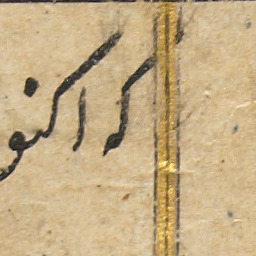 که اکنو